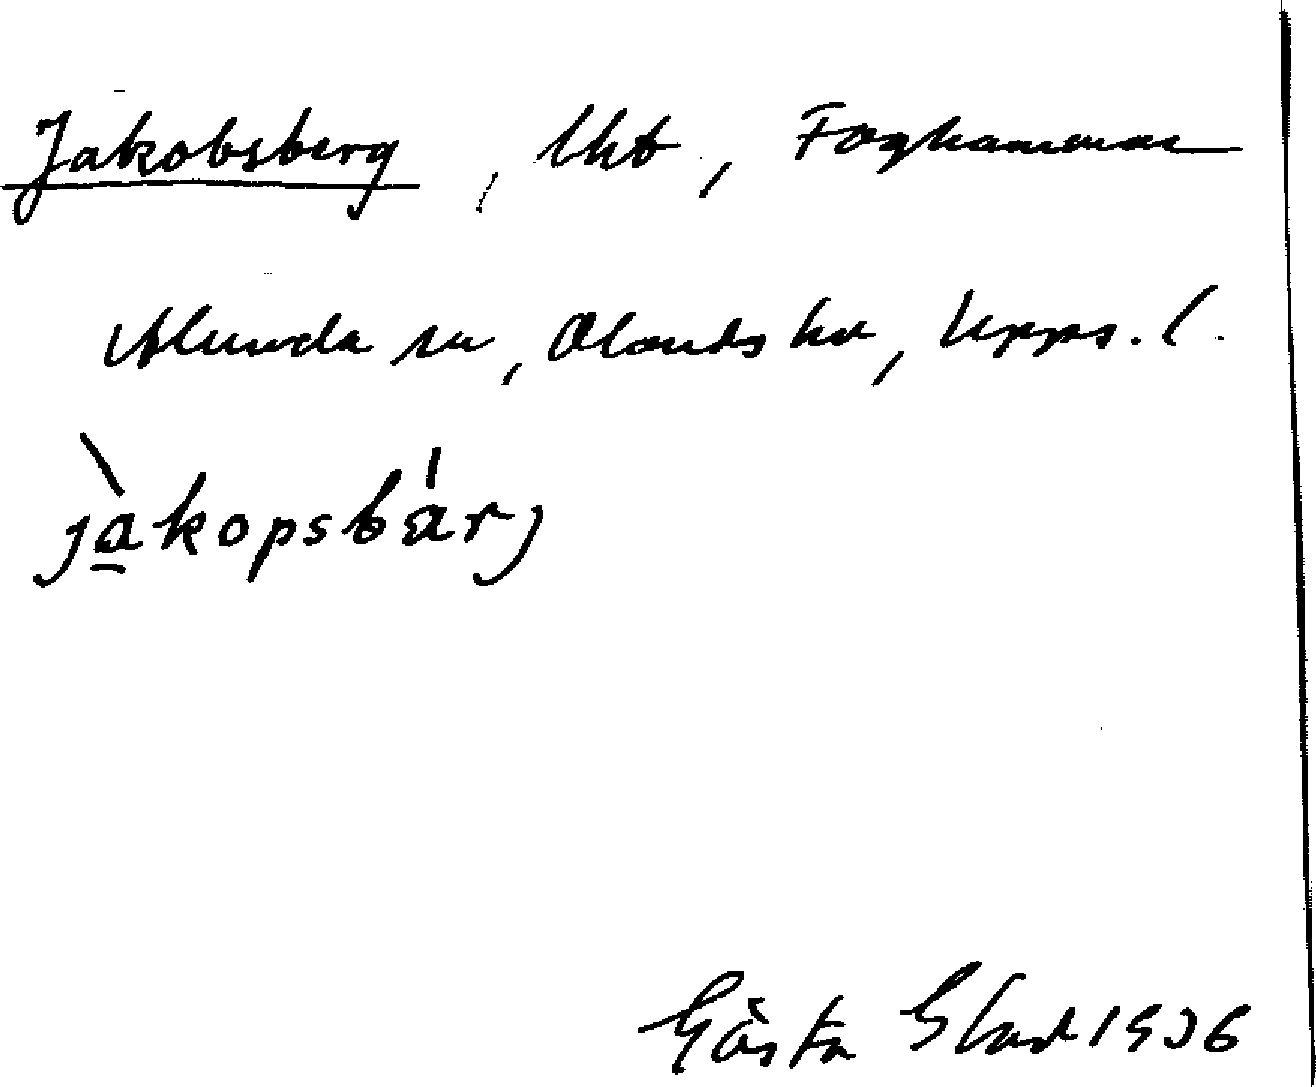 Jakobsberg, lht, Foghammar
Alunda sn, Olands hd, Upps. l.
jàkopsbárj
Gösta Blad 1936